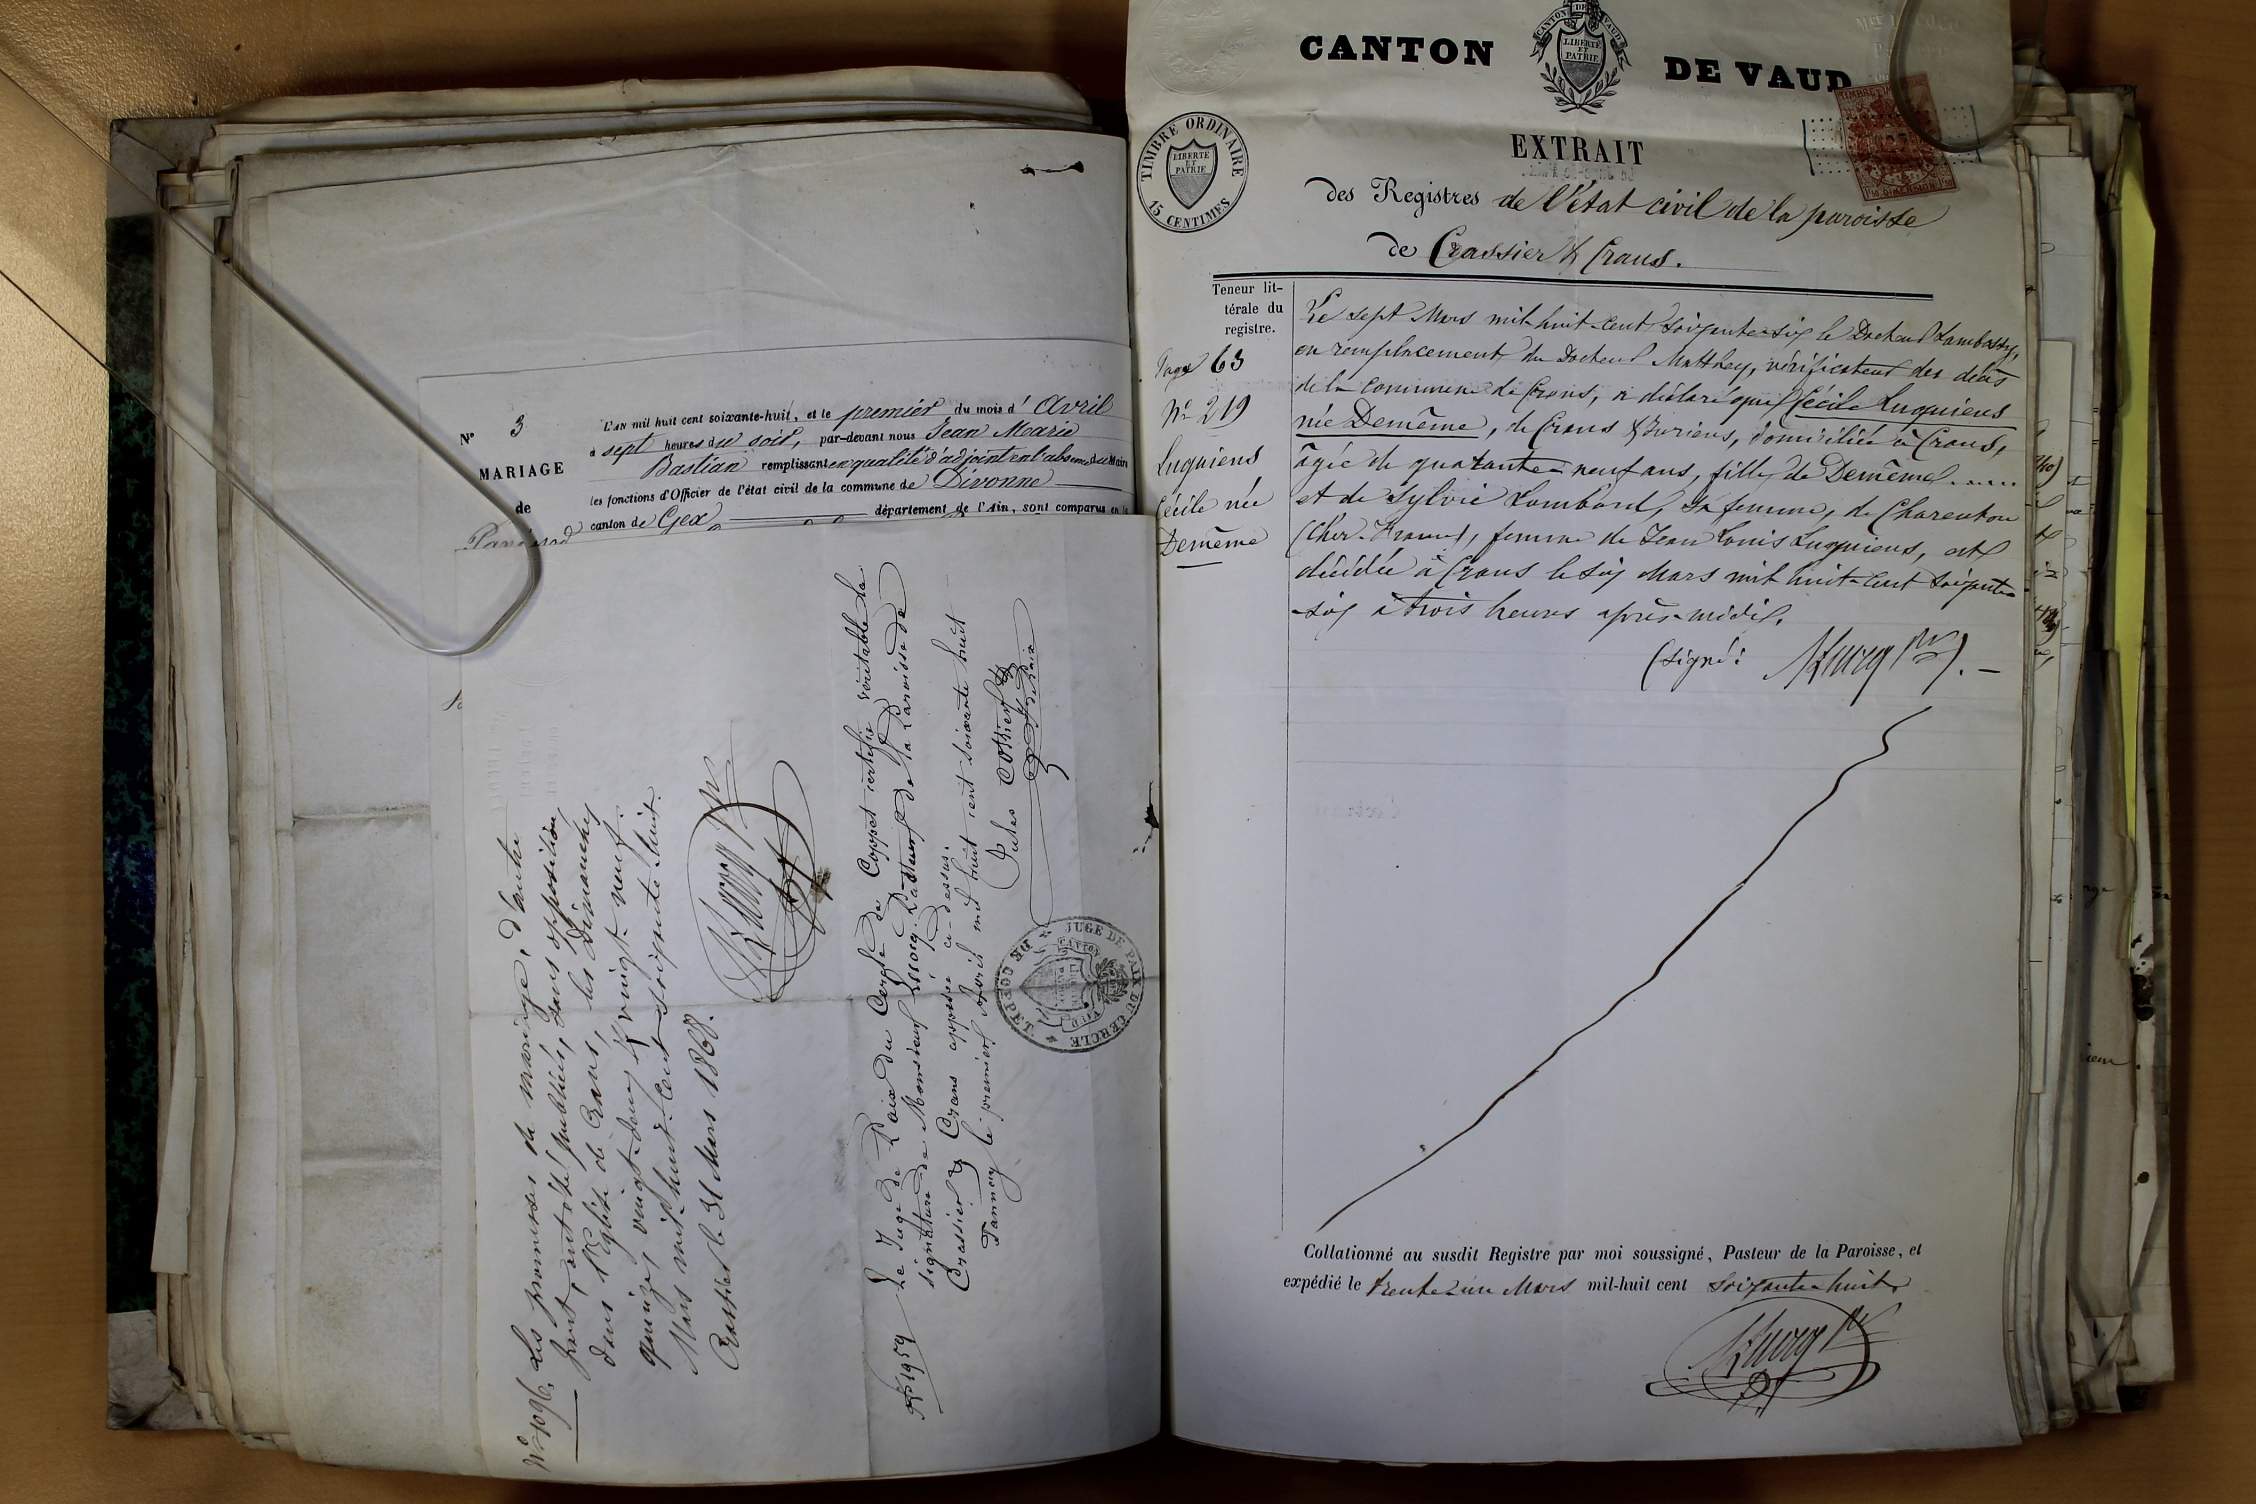 N° 3
MARIAGE
de
L'AN mil huit cent soixante-huit, et le premier du mois d'Avril
à sept heures du soir, par-devant nous Jean Marie
Bastian remplissant en qualité d'adjoint en l'absence du Maire
les fonctions d'Officier de l'état civil de la commune de Divonne
canton de Gex département de l'Ain, sont comparus en la
N° 1096. Les promesses de mariage, d'autre
part, ont été publiées, sans opposition,
dans l'Eglise de Crans, les Dimanches
quinze, vingt-deux & vingt-neuf
Mars mil-huit-cent soixante huit.
Crassier le 31 Mars 1868.
N° 1959 Le Juge de Paix du Cercle de Coppet certifie véritable la
signature de Monsieur Pasteur de la Paroisse de
Crassier & Crans apposée ci-dessus.
Tannay le premier Avril mil huit cent soixante huit
Jules
JUGE DE PAIX DU CERCLE DE COPPET
CANTON DE VAUD
CANTON DE VAUD
LIBERTÉ ET PATRIE
CANTON DE VAUD
TIMBRE ORDINAIRE
LIBERTÉ ET PATRIE
15 CENTIMES
EXTRAIT
des Registres de l'état civil de la paroisse
de Crassier & Crans.
Teneur lit-
térale du
registre.
Page 63
N° 219
Luquiens
Cécile née
Demême
Le sept Mars mil-huit-cent soixante-six le Docteur Lambossy,
en remplacement du Docteur Matthey, vérificateur des décès
de la commune de Crans, a déclaré que Cécile Luquiens
née Demême, de Crans & Juriens, domiciliée à Crans,
âgée de quarante-neuf ans, fille de Demême ......
et de Sylvie Lombard, sa femme, de Charenton
(Cher. France), femme de Jean Louis Luquiens, est
décédée à Crans le six Mars mil huit-cent soixante-
-six à trois heures après-midi.
(signé:
Collationné au susdit Registre par moi soussigné, Pasteur de la Paroisse, et
expédié le trente & un Mars mil-huit cent soixante-huit.